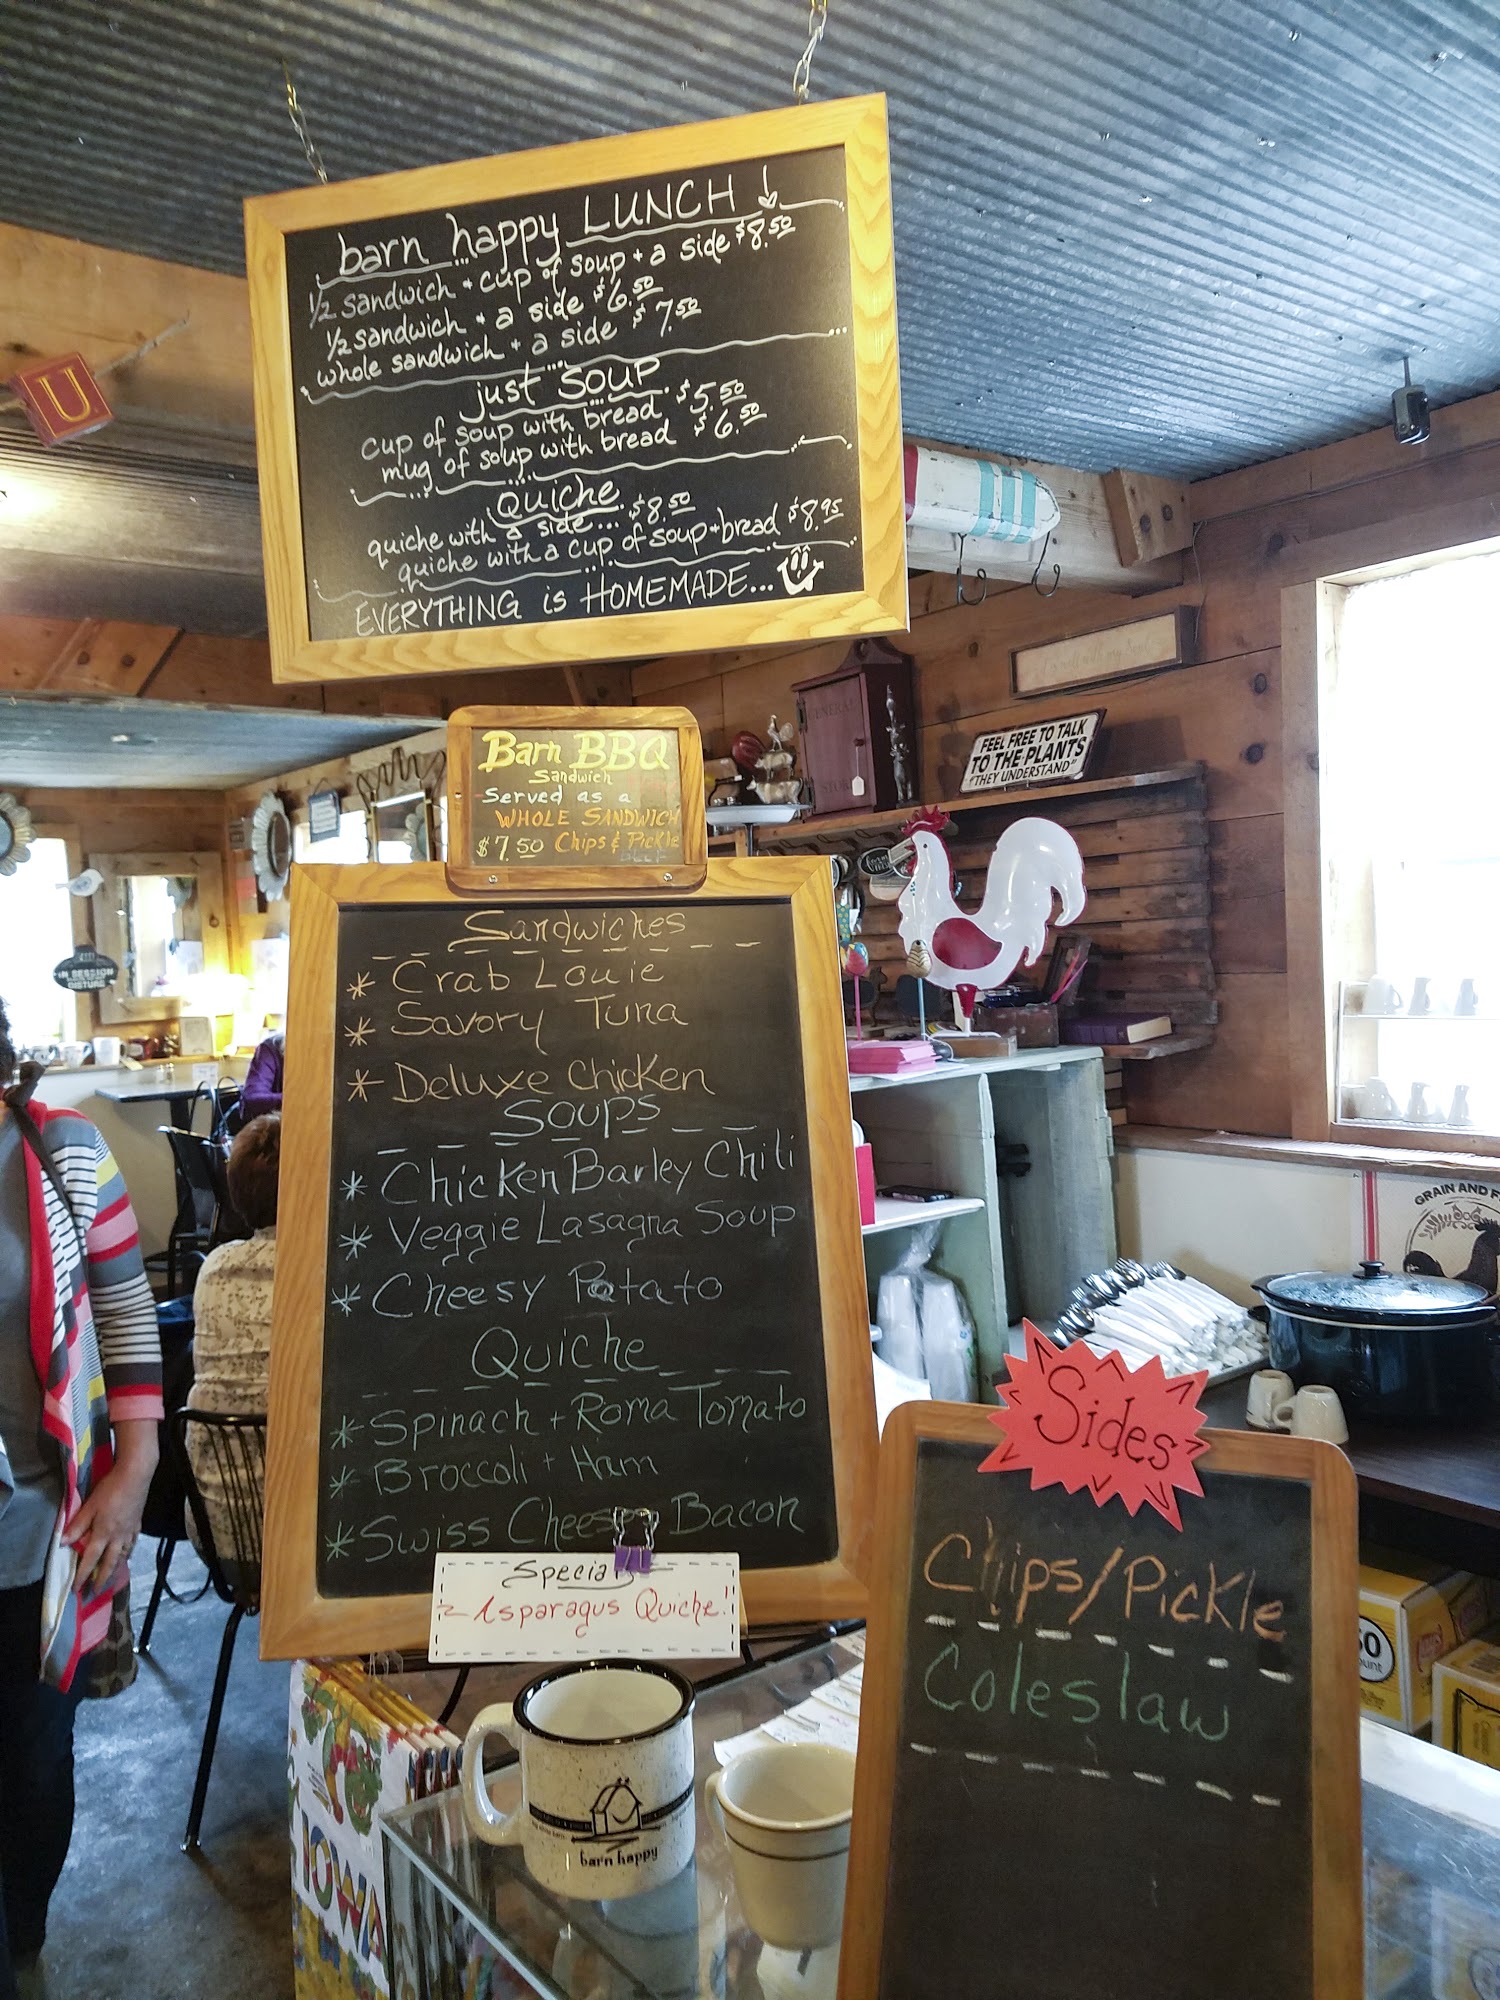 barn happy LUNCH
1/2 sandwich + cup of soup + a side $8.50
1/2 sandwich + a side $6.50
whole sandwich + a side $7.50
just SOUP
cup of soup with bread $5.50
mug of soup with bread $6.50
QUICHE
quiche with a side... $8.50
quiche with a cup of soup + bread $8.95
EVERYTHING is HOMEMADE...
U
Barn BBQ
Sandwich
Served as a
WHOLE SANDWICH
$7.50 Chips & Pickle
GENERAL
STORE
FEEL FREE TO TALK
TO THE PLANTS
"THEY UNDERSTAND"
IN SESSION
Sandwiches
* Crab Louie
* Savory Tuna
* Deluxe Chicken
Soups
* Chicken Barley Chili
* Veggie Lasagna Soup
* Cheesy Potato
Quiche
* Spinach + Roma Tomato
* Broccoli + Ham
* Swiss Cheese Bacon
Special
~ Asparagus Quiche!!
GRAIN AND F
Sides
Chips/Pickle
Coleslaw
barn happy
IOWA
50